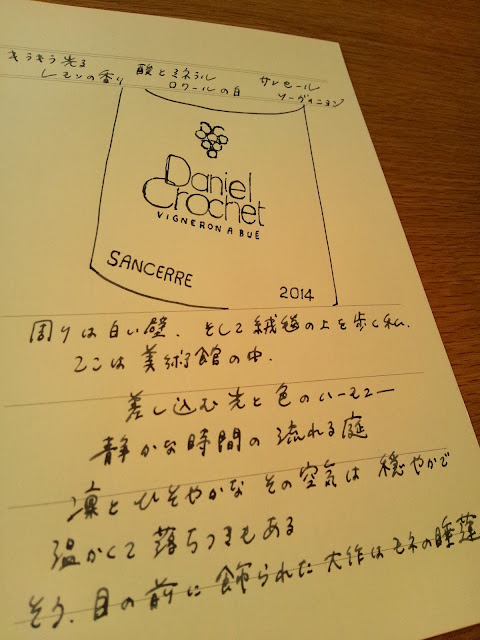 キラキラ光る
レモンの香り
酸とミネラル
ロワールの白
サンセール
ソーヴィニヨン
Daniel
Crochet
VIGNERON A BUÉ
SANCERRE
2014
周りは白い壁. そして絨毯の上を歩く私.
ここは美術館の中.
差し込む光と色のハーモニー
静かな時間の流れる庭
凛とひそやかな その空気は 穏やかで
温かくて落ちつきもある
そう. 目の前に飾られた大作はモネの睡蓮